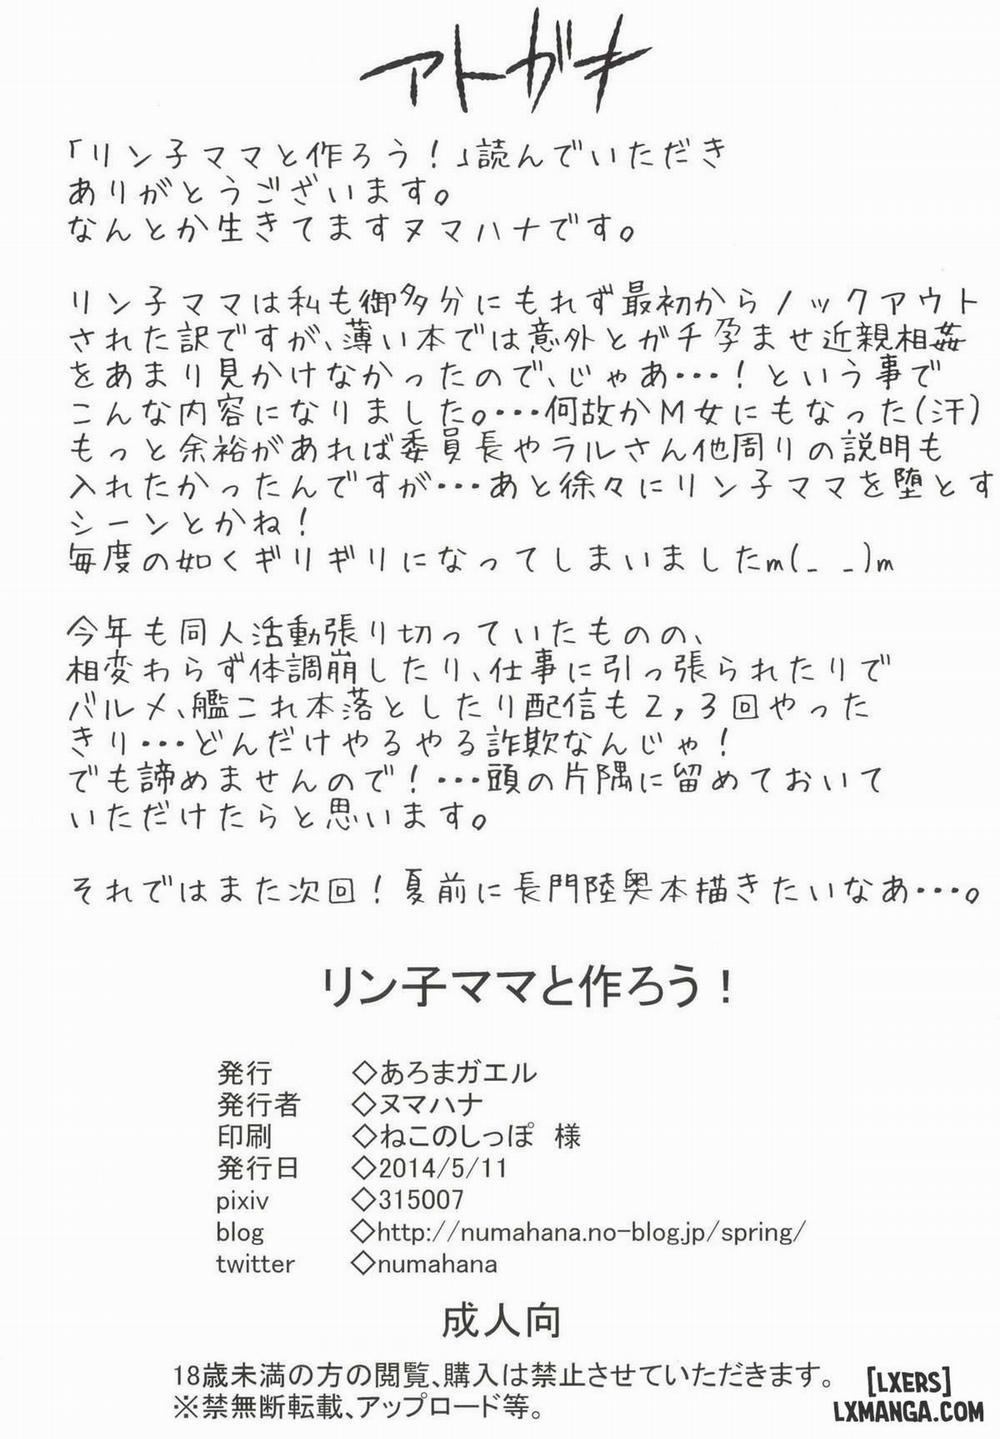 アトガキ
「リン子ママと作ろう！」読んでいただき
ありがとうございます。
なんとか生きてますヌマハナです。
リン子ママは私も御多分にもれず最初からノックアウト
された訳ですが、薄い本では意外とガチ孕ませ近親相姦
をあまり見かけなかったので、じゃあ・・・！という事で
こんな内容になりました。・・・何故かM女にもなった(汗)
もっと余裕があれば委員長やラルさん他周りの説明も
入れたかったんですが・・・あと徐々にリン子ママを堕とす
シーンとかね！
毎度の如くギリギリになってしまいましたm(_ _)m
今年も同人活動張り切っていたものの、
相変わらず体調崩したり、仕事に引っ張られたりで
バルメ、艦これ本落としたり配信も2,3回やった
きり・・・どんだけやるやる詐欺なんじゃ！
でも諦めませんので！・・・頭の片隅に留めておいて
いただけたらと思います。
それではまた次回！夏前に長門陸奥本描きたいなあ・・・。
リン子ママと作ろう！
発行 ◇あろまガエル
発行者 ◇ヌマハナ
印刷 ◇ねこのしっぽ 様
発行日 ◇2014/5/11
pixiv ◇315007
blog ◇http://numahana.no-blog.jp/spring/
twitter ◇numahana
成人向
18歳未満の方の閲覧、購入は禁止させていただきます。
※禁無断転載、アップロード等。
[LXERS]
LXMANGA.COM